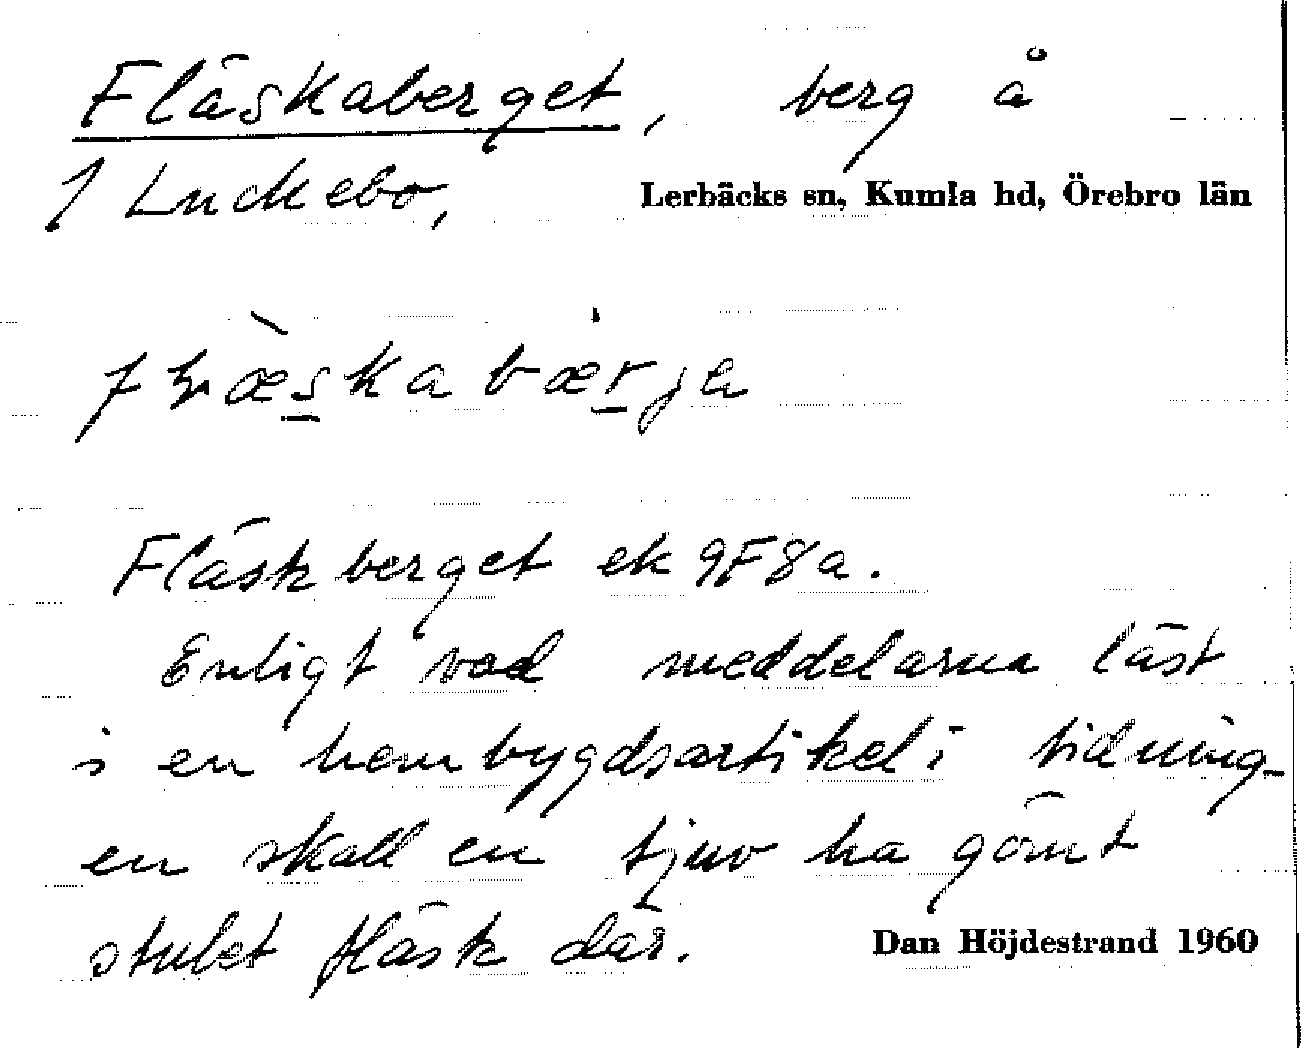 Fläskaberget, berg å
1 Luckebo, Lerbäcks sn, Kumla hd, Örebro län
Fläskberget ek 9F8a.
Enligt vad meddelarna läst
i en hembygdsartikel i tidning-
en skall en tjuv ha gömt
stulet fläsk där. Dan Höjdestrand 1960